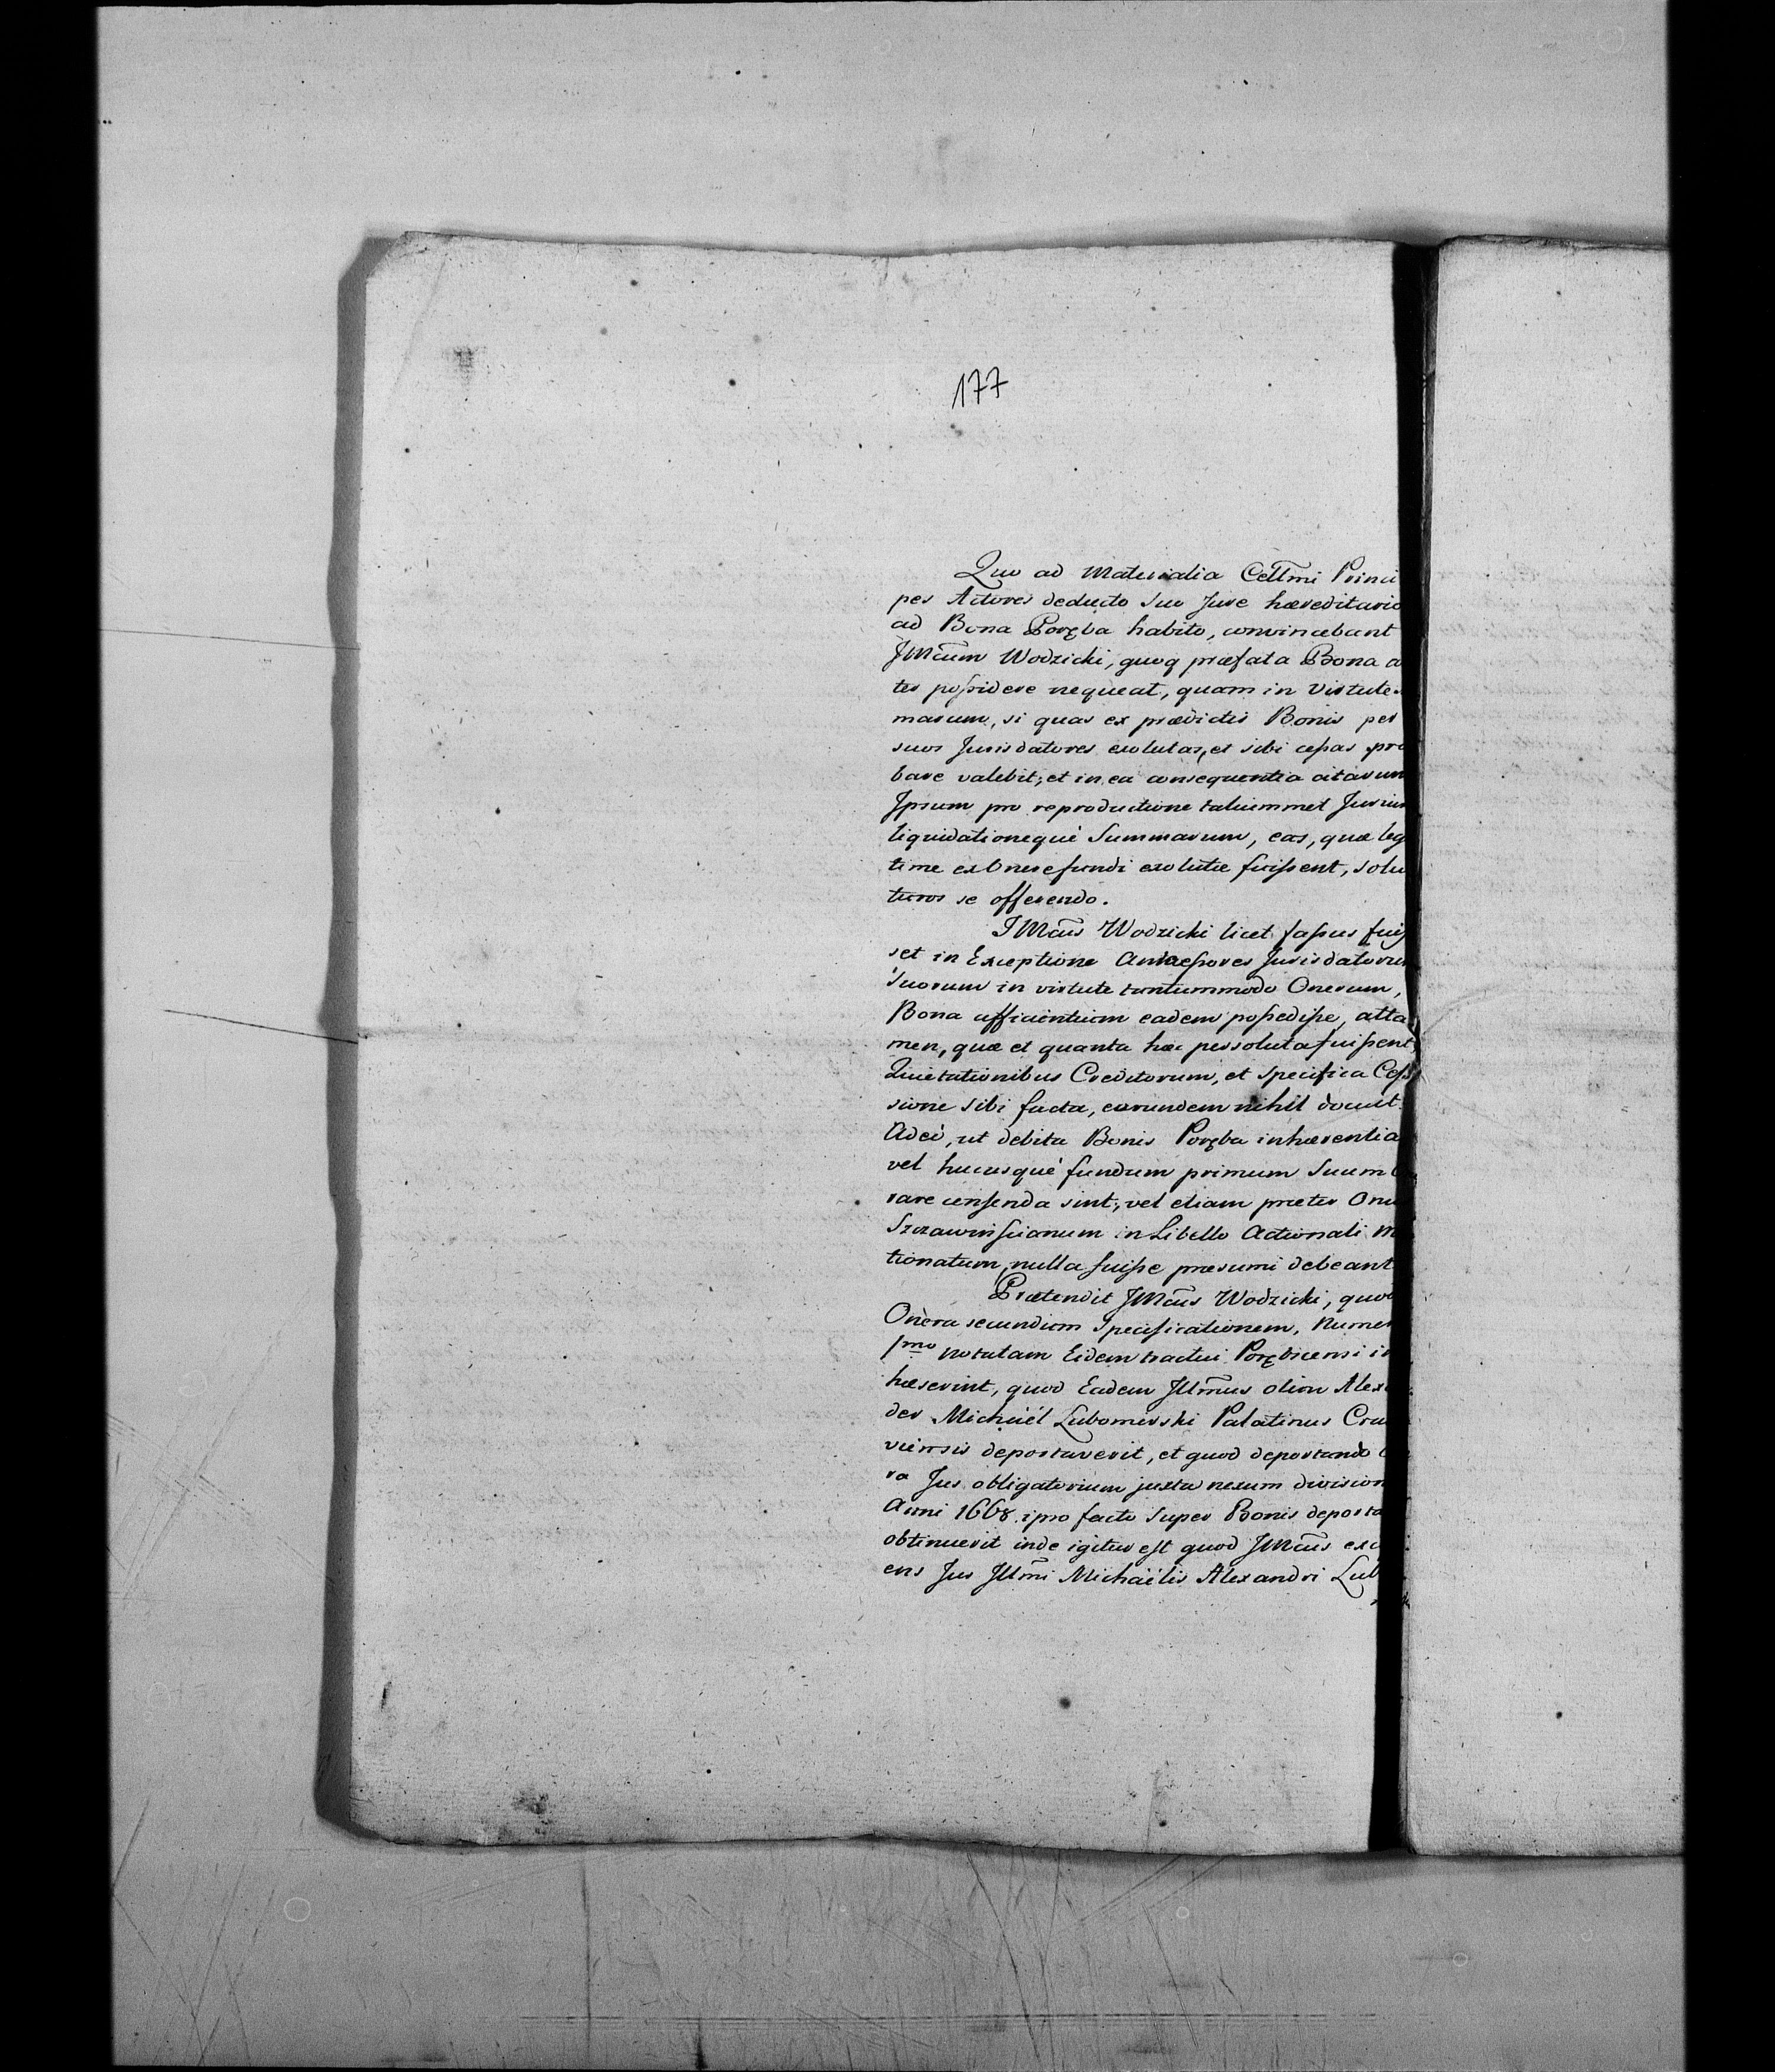 177
Quo ad Materialia Cellmi Princi
pes Actores deducto Suo Jure hæreditario
ad Bona Poręba habito, convincebant
JMcum Wodzicki, quoq præfata Bona a
ter possidere nequeat, quam in Virtute
marum, si quas ex prædictis Bonis per
suos Jurisdatores exolutas, et sibi cessas pro
bare valebit; et in ea consequentia citarum
Ipsum pro reproductione taliummet Jurium
liquidationequè Summarum, eas, quæ leg
time ex Onere fundi exolutæ fuissent, solu
turos se offerendo.
JMcus Wodzicki licet fassus fuis
set in Exceptione Antecessores Jurisdatorum
Suorum in virtute tantummodo Onerum,
Bona afficientium eadem possedisse, atta
men, quæ et quanta hæc persoluta fuissent
Quietationibus Creditorum, et specifica Ces
sione sibi facta, earundem nihil docuit.
Adeò, ut debita Bonis Poręba inhærentia
vel hucusquè fundum primum Suum
rare censenda sint, vel etiam præter Onu
Szczawinscianum in Libello Actionali M
tionatum, nulla fuisse præsumi debeant
Prætendit JMcus Wodzicki, quod
Onera secundum Specificationem, Numer
1mo notatam Eidem tractui Porębicensi in
hæserint, quod Eadem Jllmus olim Alex
der Michaël Lubomirski Palatinus Cra
viensis deportaverit, et quod deportando
ra Jus obligatorium juxta nexum division
Anni 1668. ipso facto Super Bonis deporta
obtinuerit inde igitur est quod JMcus exc
ens Jus Jllmi Michaëlis Alexandri Lub